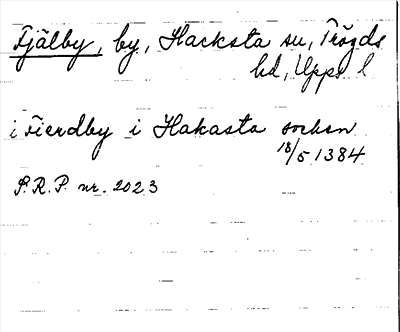 Fjälby, by, Hacksta sn, Trögds
hd, Upps. l
i Fierdby i Hakasta sochen
18/5 1384
S.R.P. nr. 2023